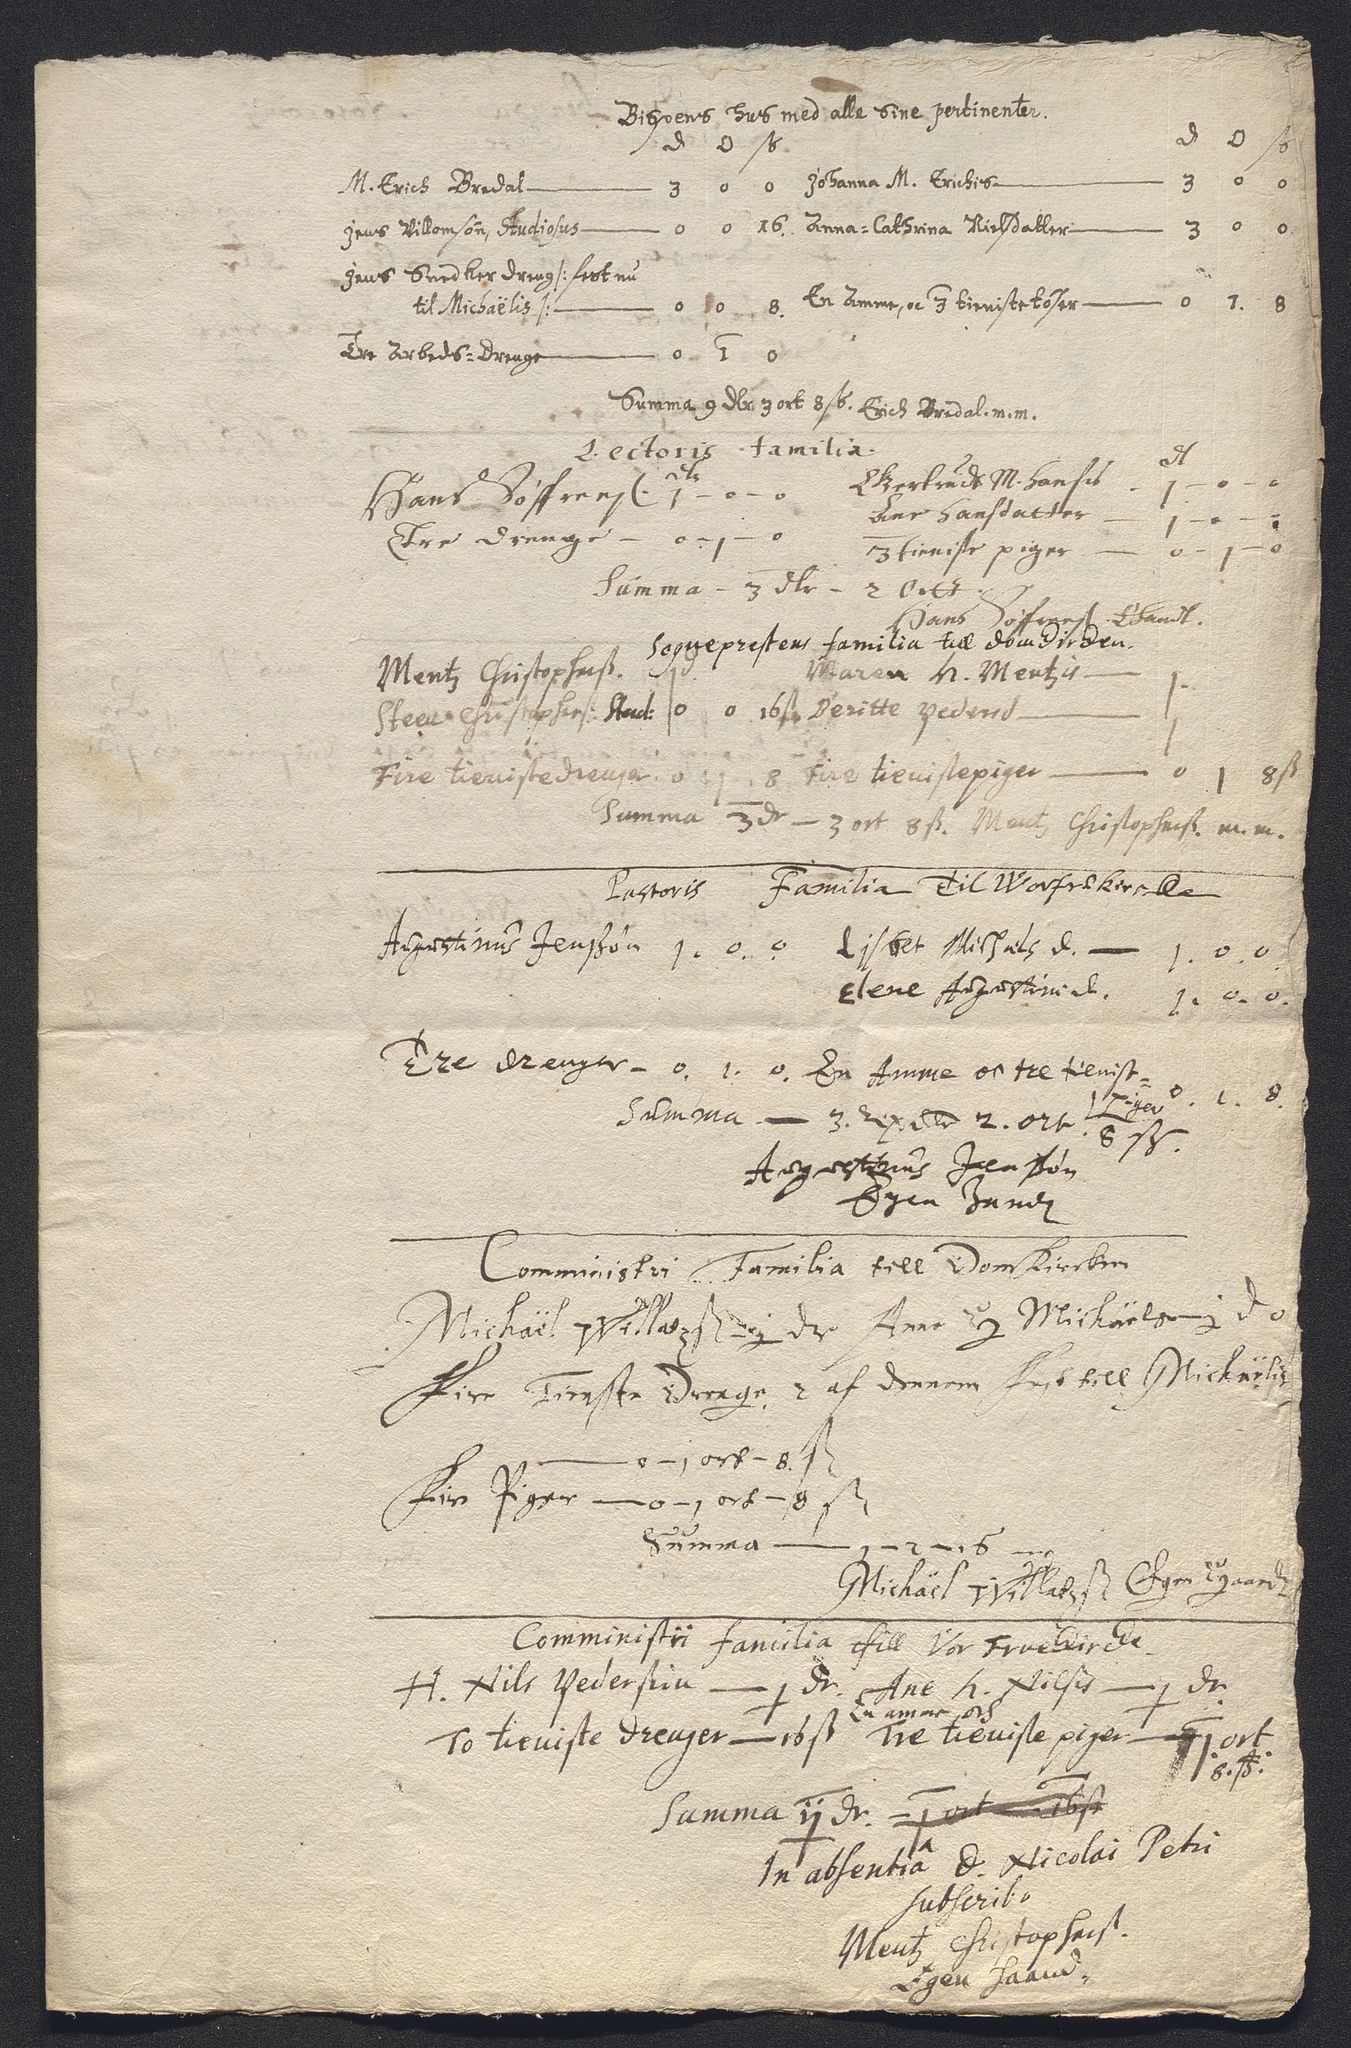 Bispens hus med alle sine pertinentier.
d O ß d O ß
M. Erich Bredal — 3 0 0 Johanna M. Erichis — 3 0 0
Jens Villomsøn, Studiosus — 0 0 16. Anna-Cathrina Nielsdatter — 3 0 0
Jens Snedker dreng /: fest nu
til Michaëlis :/ — 0 0 8. En Amme, oc 3 tienistetøser — 0 1. 8
Tre Arbeds-Drenge — 0 1 0
Summa 9 dlr 3 ort 8 ß. Erich Bredal. m.m.
Lectoris familia.
dlr dl
Hans Søffrensß. 1 - 0 - 0 Gertrud M. Hansis - 1 - 0 - 0
Ane Hansdatter — 1 - 0 - 0
Tre drenge - 0 - 1 - 0 3 tieniste piger — 0 - 1 - 0
Summa - 3 dlr - 2 Ort.
Hans Søffrensß. Ehandt.
Sogneprestens familia till domkircken.
Mentz Christophersß. 1 d. Maren H. Mentzis — 1.
Steen Christophers: Stud: 0 0 16 ß. Beritte Pedersd — 1
Fire tienistedrenger 0 1 8 Fire tienistepiger — 0 1 8 ß
Summa 3 dr — 3 ort 8 ß. Mentz Christophersß. m.m.
Pastoris Familia Til Worfrekircke
Augustinus Jenßøn 1. 0. 0 Lisbet Michels d. — 1. 0. 0.
Elene Augustini d. 1. 0. 0.
Tre drenger - 0. 1. 0. En Amme oc tre tienist-
Piger 0. 1. 8.
Summa — 3. Rixdlr 2. ort. 8 ß.
Augustinus Jenßøn
Egen Handt
Comministri Familia till Domkircken
Michaël Willatzß - j dr Anne H Michaëls - j d 0
Fire Tieniste Drenge, 2 af dennem fest till Michaelis
— 0 - 1 ort - 8. ß
Fire Piger — 0 - 1 ort - 8 ß
Summa — - 2 - 16
Michaël Willatzß Egen Haandt
Comministri familia till Vor Fruekircke
H. Nils Pedersøn — 1 dr. Ane H. Nilsis — 1 dr.
En amme och
To tieniste drenger — 16 ß Tre tieniste piger — 1 ort
8. ß:
Summa ij dr. - 1 ort — 16 ß
In absentiâ D. Nicolai Petri
subscribo
Mentz Christophersß.
Egen haand.